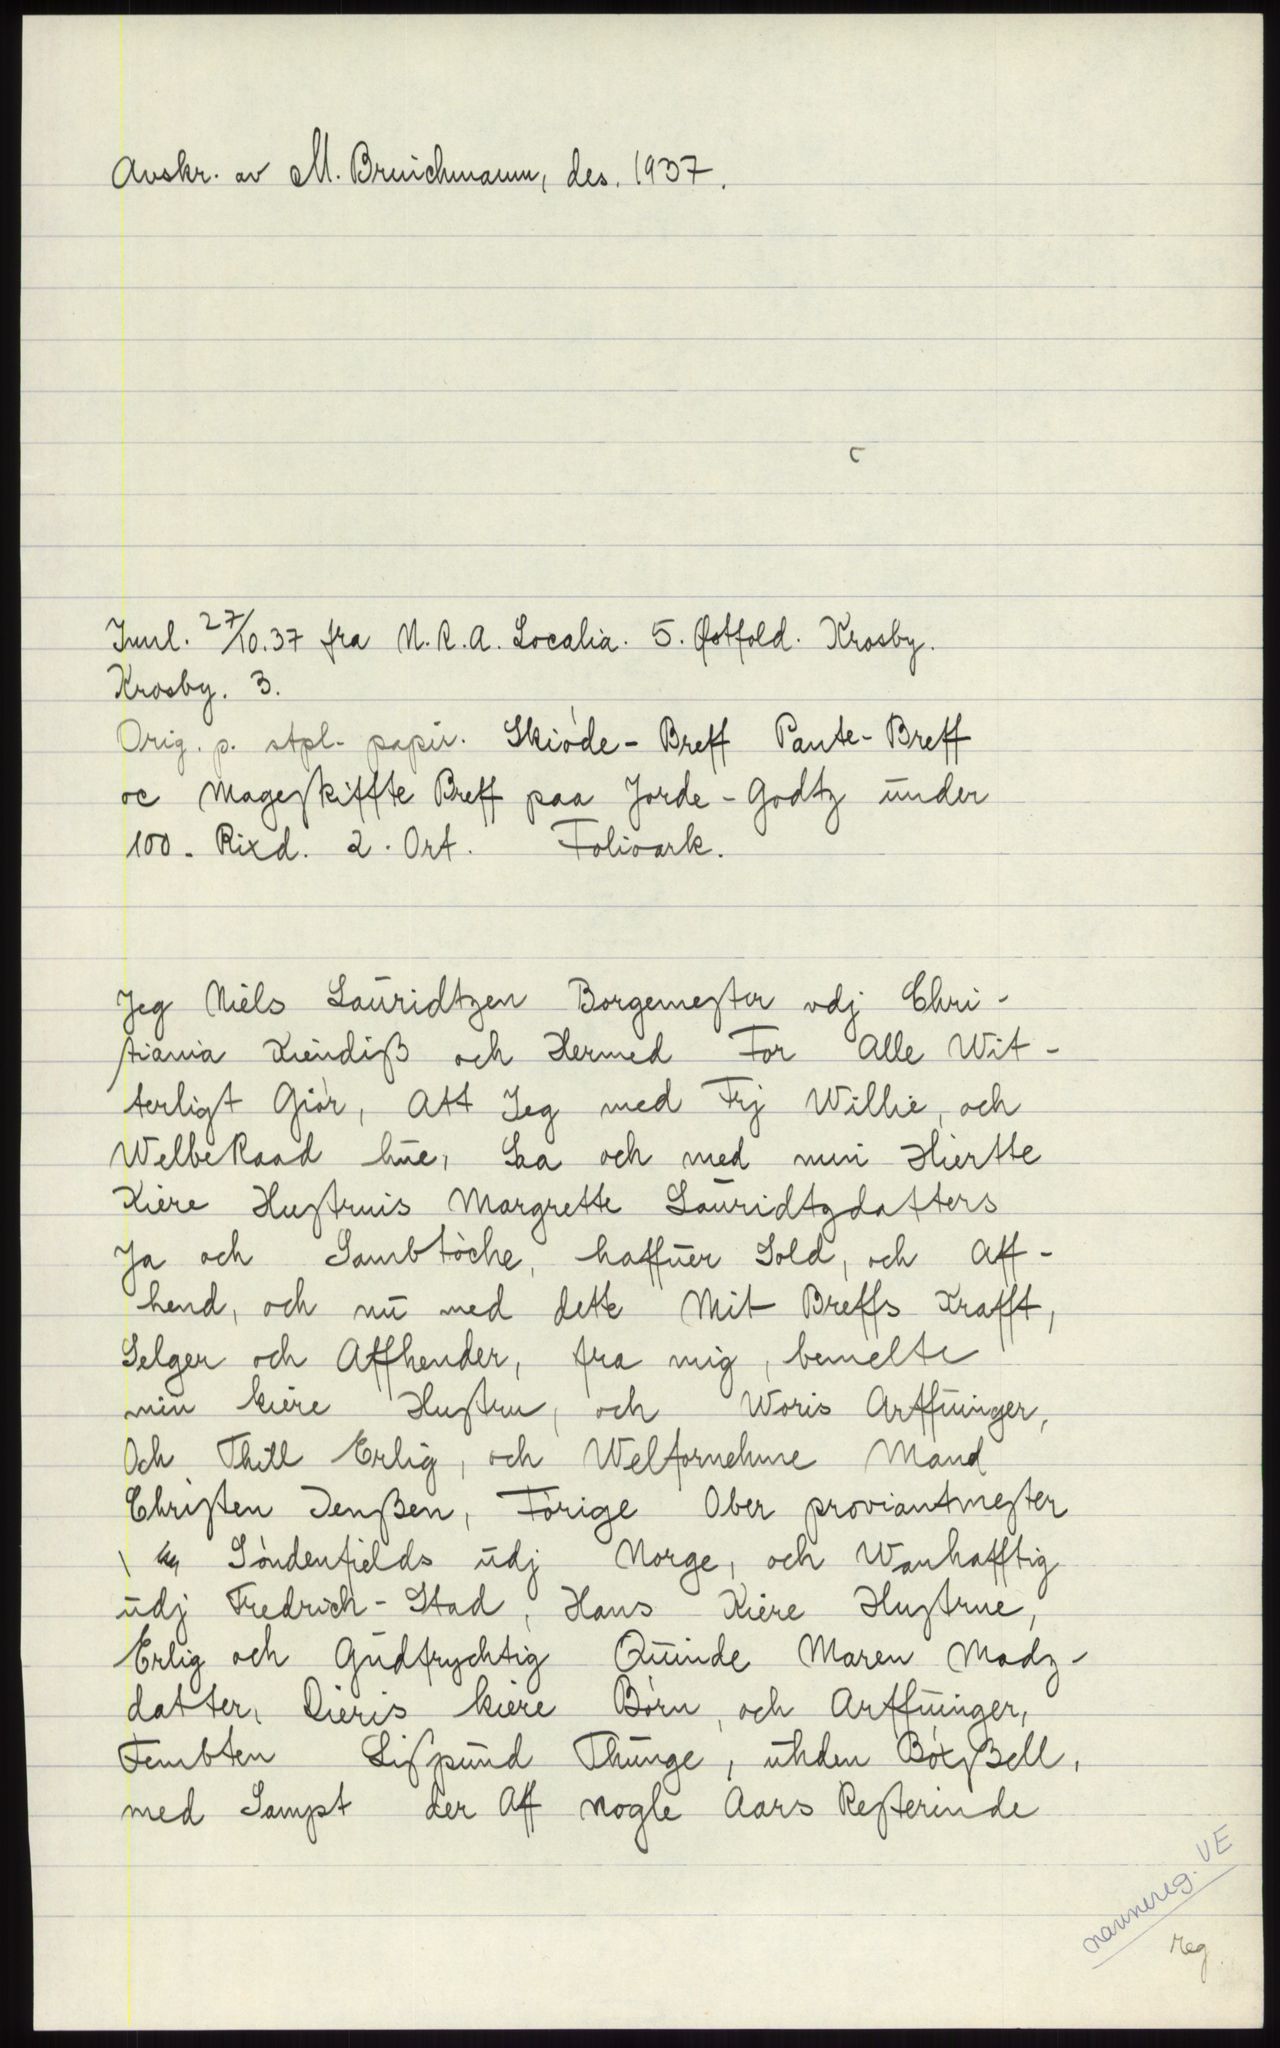 Avskr. av M. Bruichmann, des. 1937.
Innl. 27/10.37 fra N.R.A. Localia. 5. Østfold. Krosby.
Krosby. 3.
Orig. p. stpl. papir. Skiöde-Breff Pante-Breff
oc Mageskiffte Breff paa Jorde-Godtz under
100. Rixd. 2. Ort. Folioark.
Jeg Niels Lauridtzen Borgemester vdj Chri-
stiania Kiendiß och Hermed For Alle Wit-
terligt Giör, Att Jeg med Frj Willie, och
WelbeRaad hue, Saa och med min Hiertte
Kiere Hustruis Margrette Lauridtzdatters
Ja och Sambtöche, haffuer Sold, och Aff-
hend, och nu med dette Mit Breffs Krafft,
Selger och Affhender, fra mig, bemelte
min kiere Hustru, och Woris Arffuinger,
Och Thill Erlig, och Welfornehme Mand
Christen Jenßen, Forige Ober proviantmester
Söndenfields udj Norge, och Wonhafftig
udj Fredrich-Stad, Hans Kiere Hustrue,
Erlig och Gudfrychtig Quinde Maren Madz-
datter, Dieris kiere Börn, och Arffuinger,
Fembten Lispund Thunge, uhden Böxßell,
med Sampt der Aff nogle Aars Resterinde
nannereg. VE
reg.